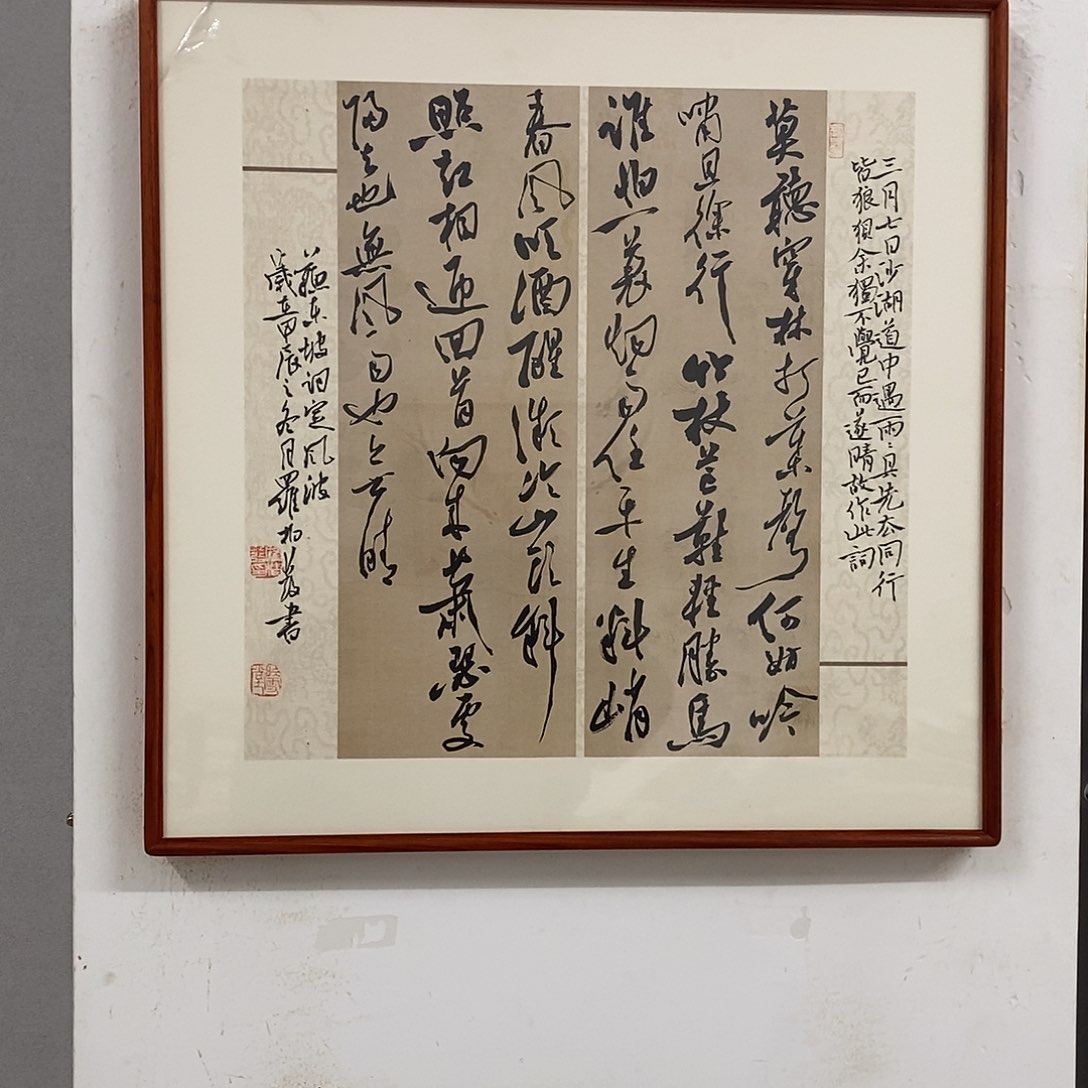 三月七日沙湖道中遇雨〻具先去同行
皆狼狽余獨不覺已而遂晴故作此詞
莫聽穿林打葉聲何妨吟
嘯且徐行竹杖芒鞋輕勝馬
誰怕一蓑烟雨任平生料峭
春風吹酒醒微冷山頭斜
照却相迎回首向來蕭瑟處
歸去也無風雨也无晴
蘇東坡詞定風波
歲在甲辰之冬月羅書